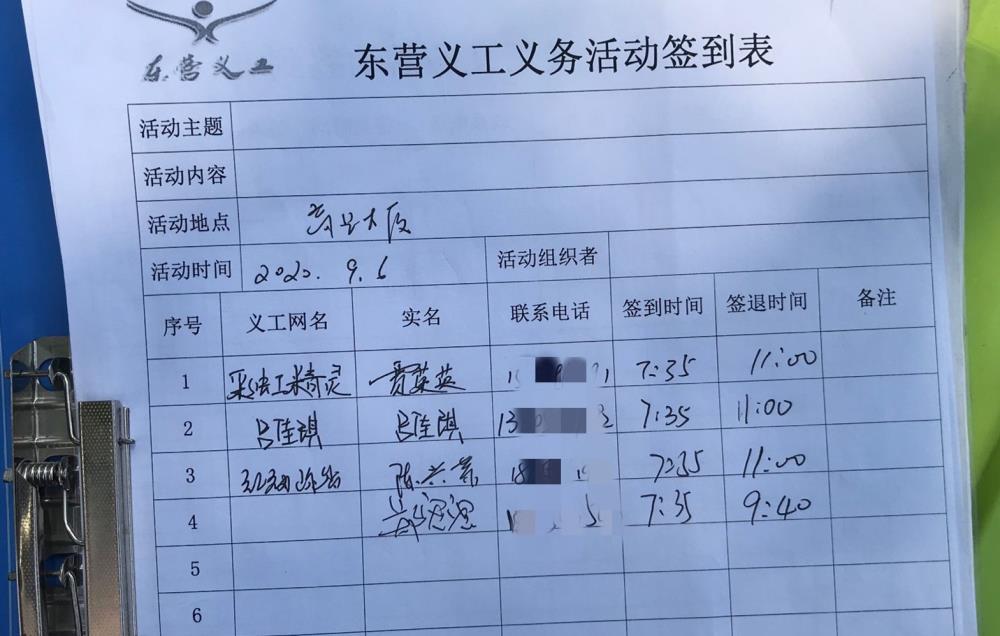 东营义工
东营义工义务活动签到表
活动主题
活动内容
活动地点
活动时间 2020. 9. 6 活动组织者
序号 义工网名 实名 联系电话 签到时间 签退时间 备注
1 精灵 7:35 11:00
2 吕佳琪 吕佳琪 13 7:35 11:00
3 18 7:35 11:00
4 7:35 9:40
5
6